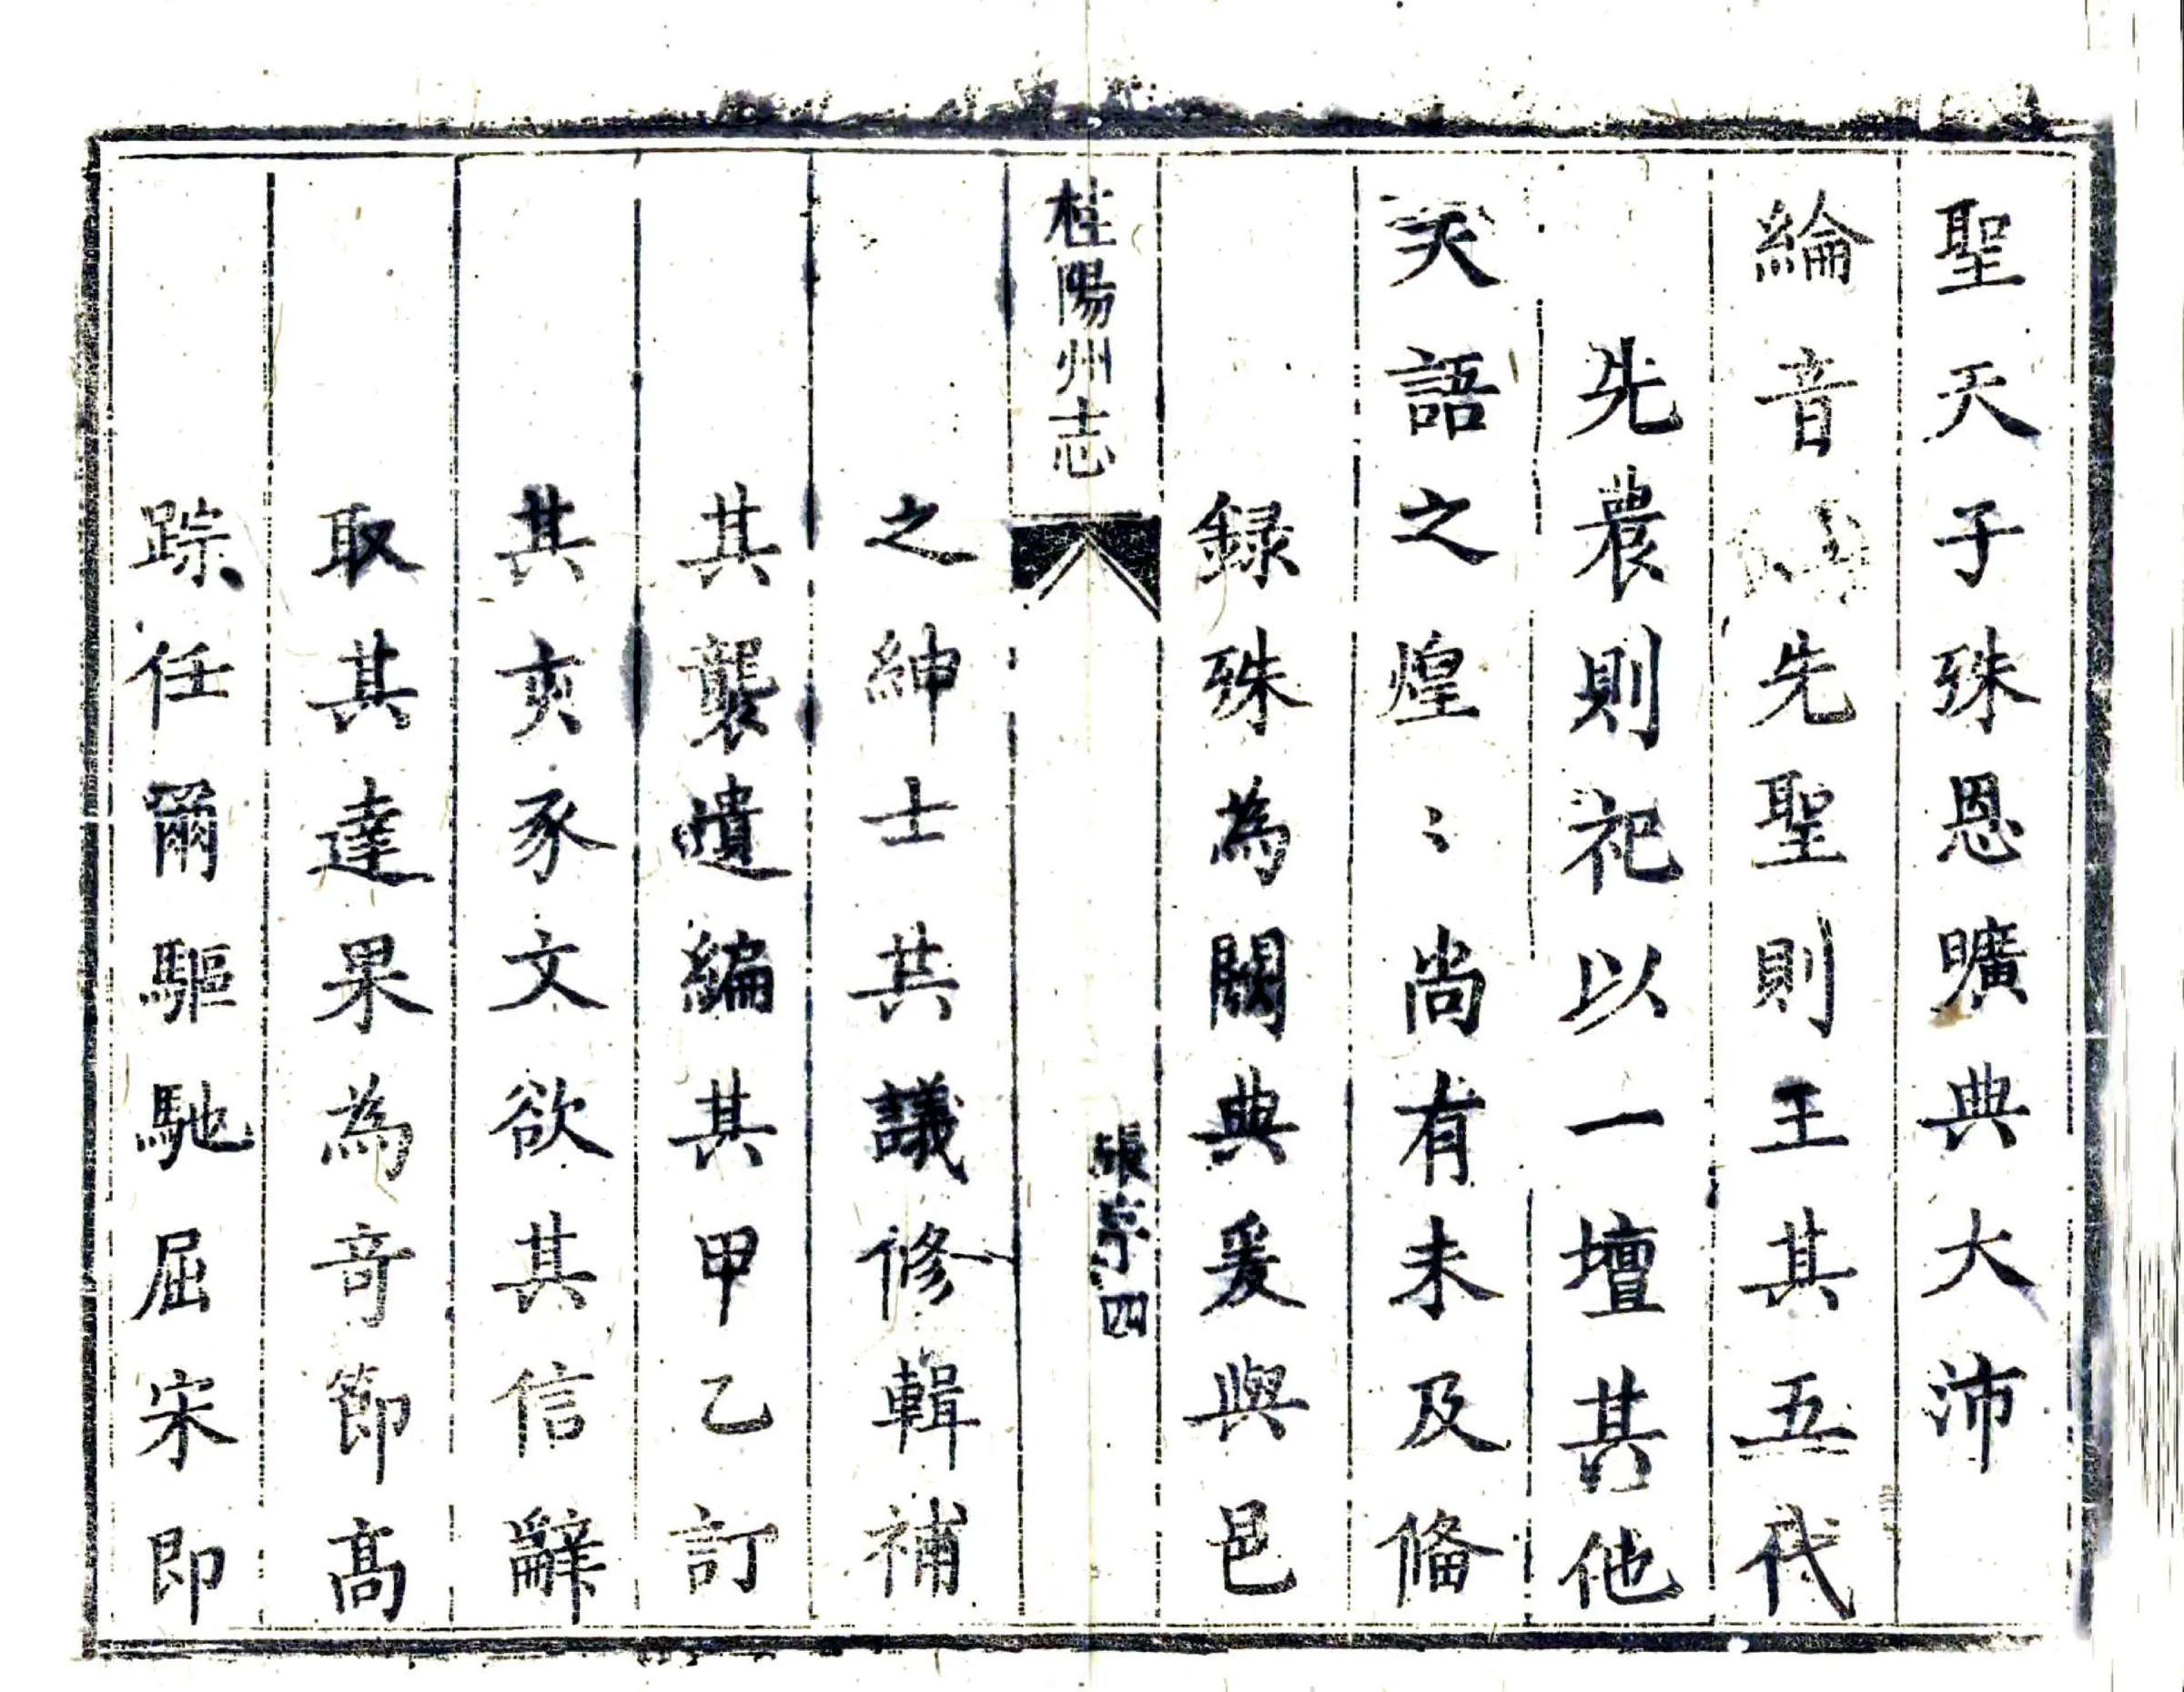 聖天子殊恩曠典大沛
綸音先聖則王其五代
先農則祀以一壇其他
天語之煌〻尚有未及偹
録殊為闕典爰與邑
桂陽州志
張宗四
之紳士共議修輯補
其襲遺編其甲乙訂
其亥豕文欲其信辭
取其達果為竒節高
踪任爾驅馳屈宋即